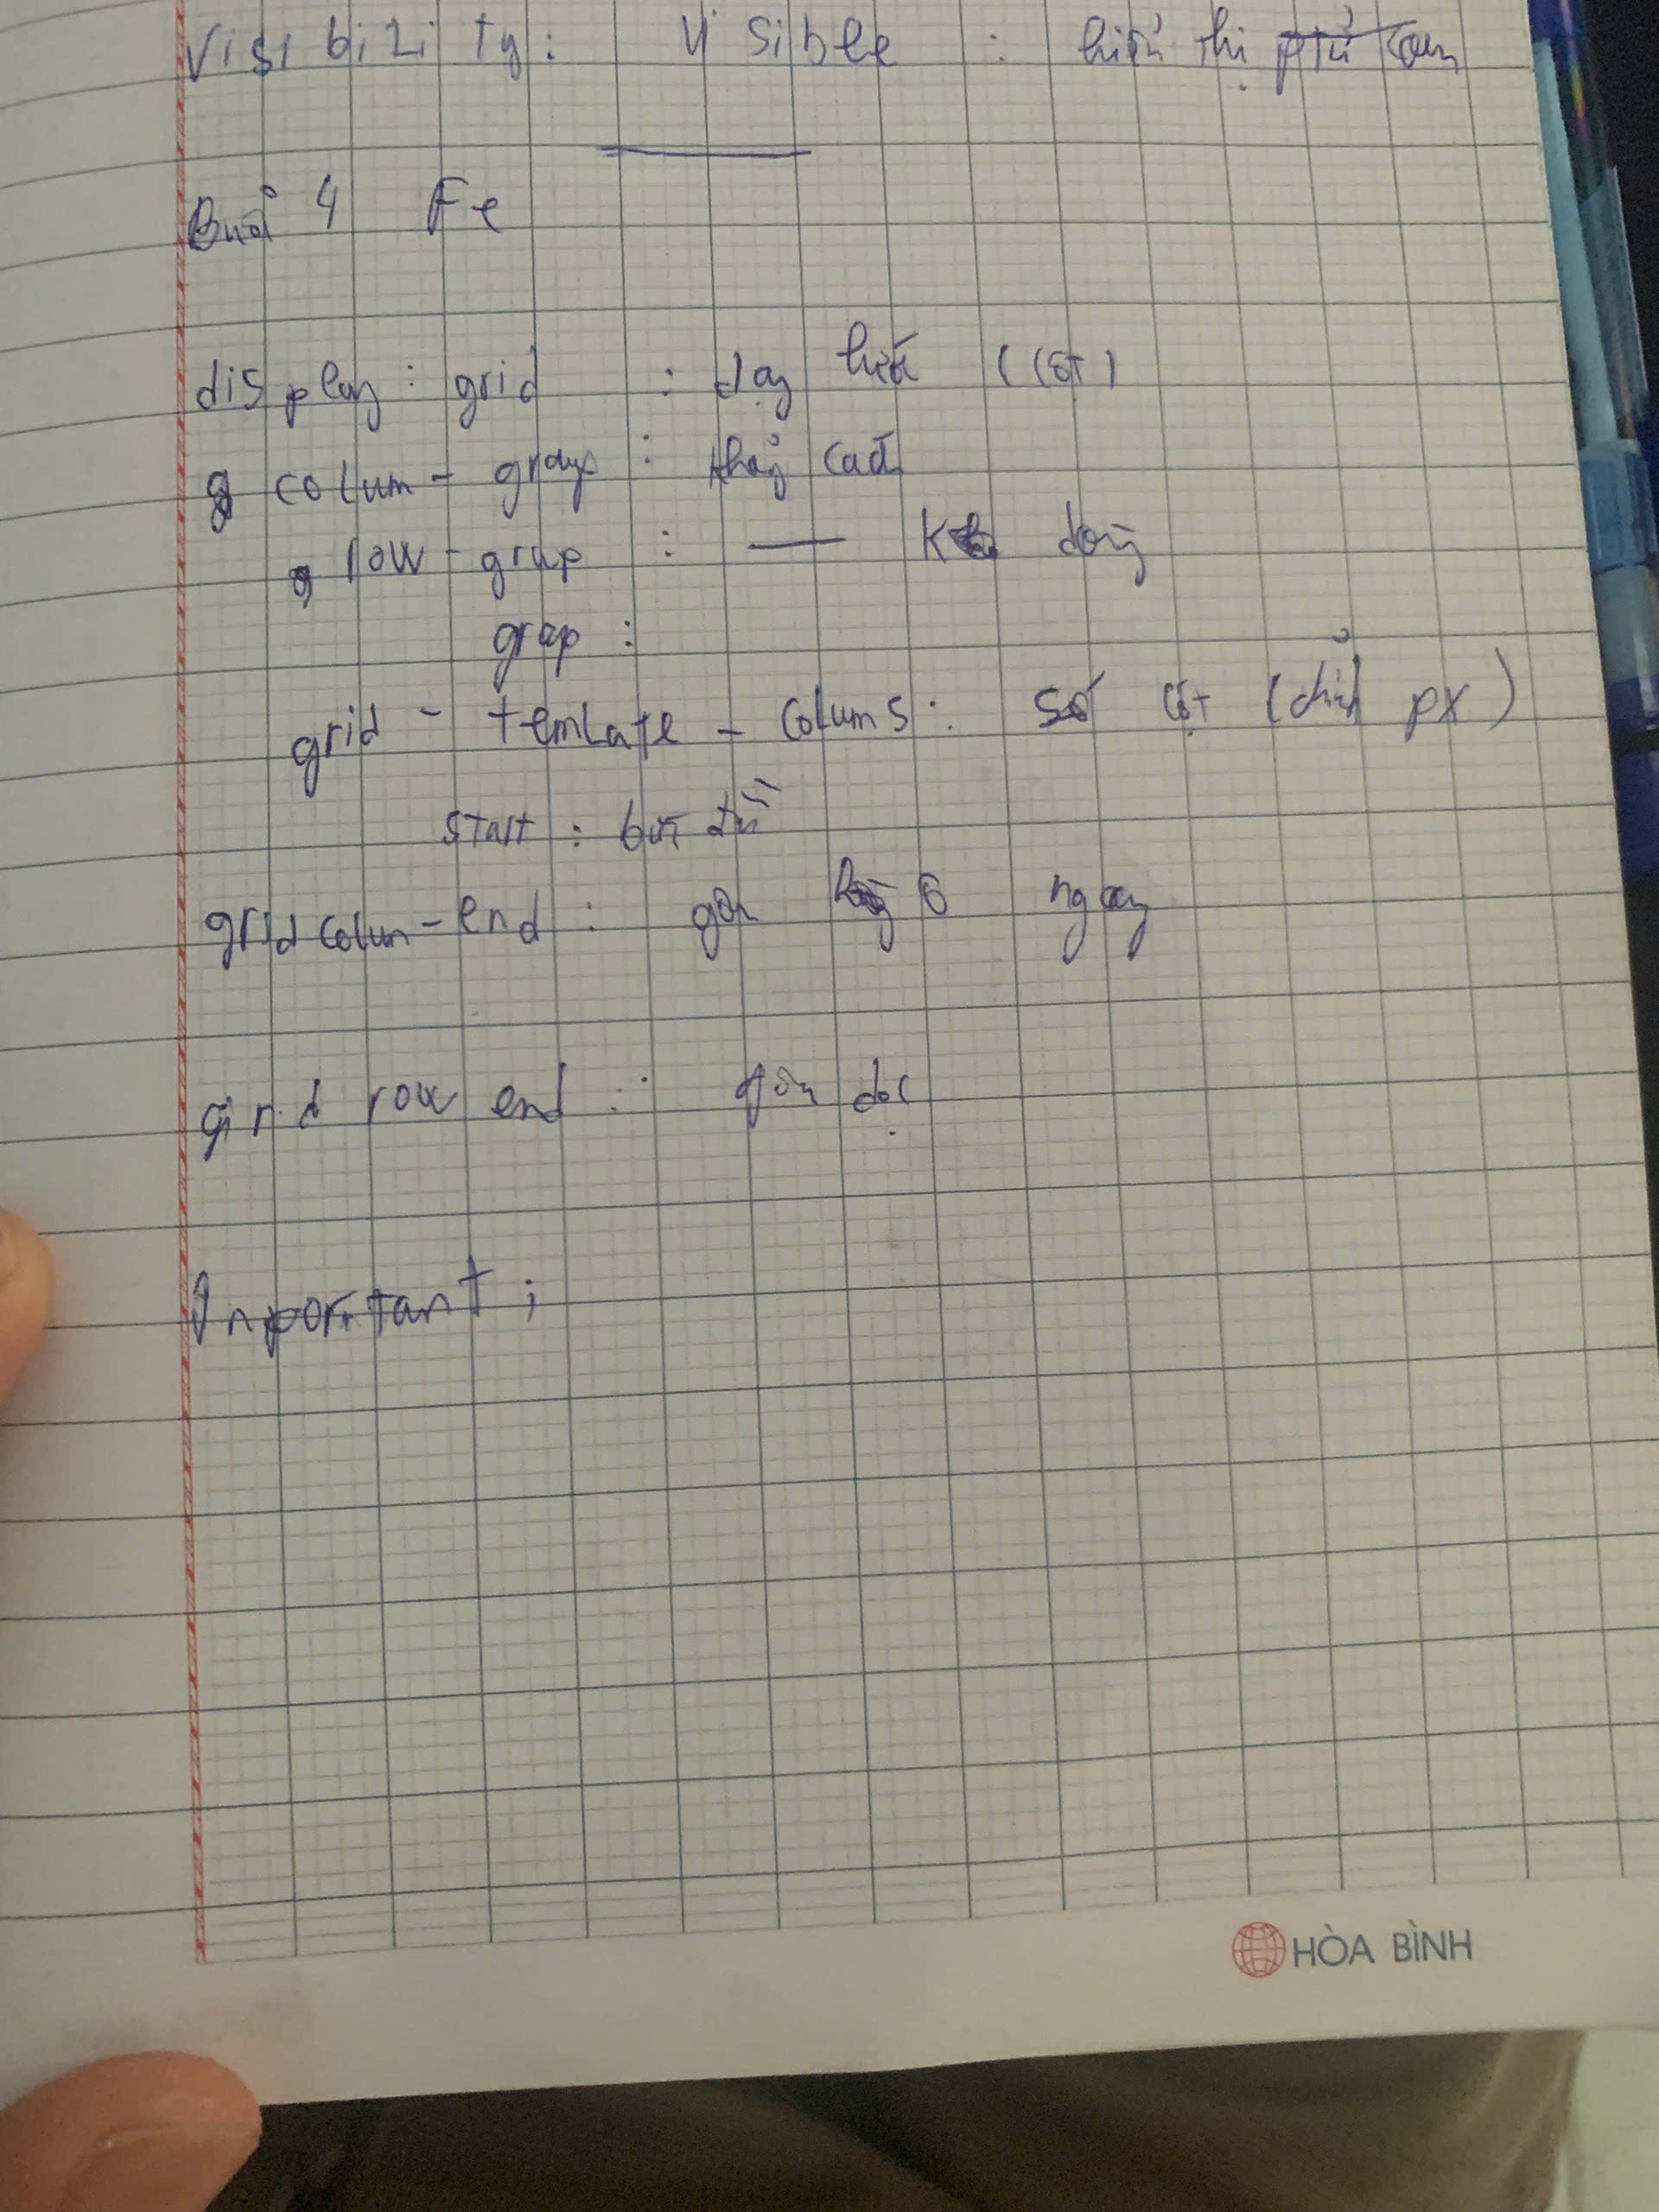 Visibility: Visible : hiển thị ptử con
Buổi 4 Fe
display: grid : dạy hiể (cột)
g colum - grap : khoảng cách
row - grap : — dòng
grap :
grid - temlate - colums: số cột (chỉnh px)
start : bắt đầu
grid colum - end : gộp ô ngay
grid row end : gộp dọc
Inportant ;
HÒA BÌNH